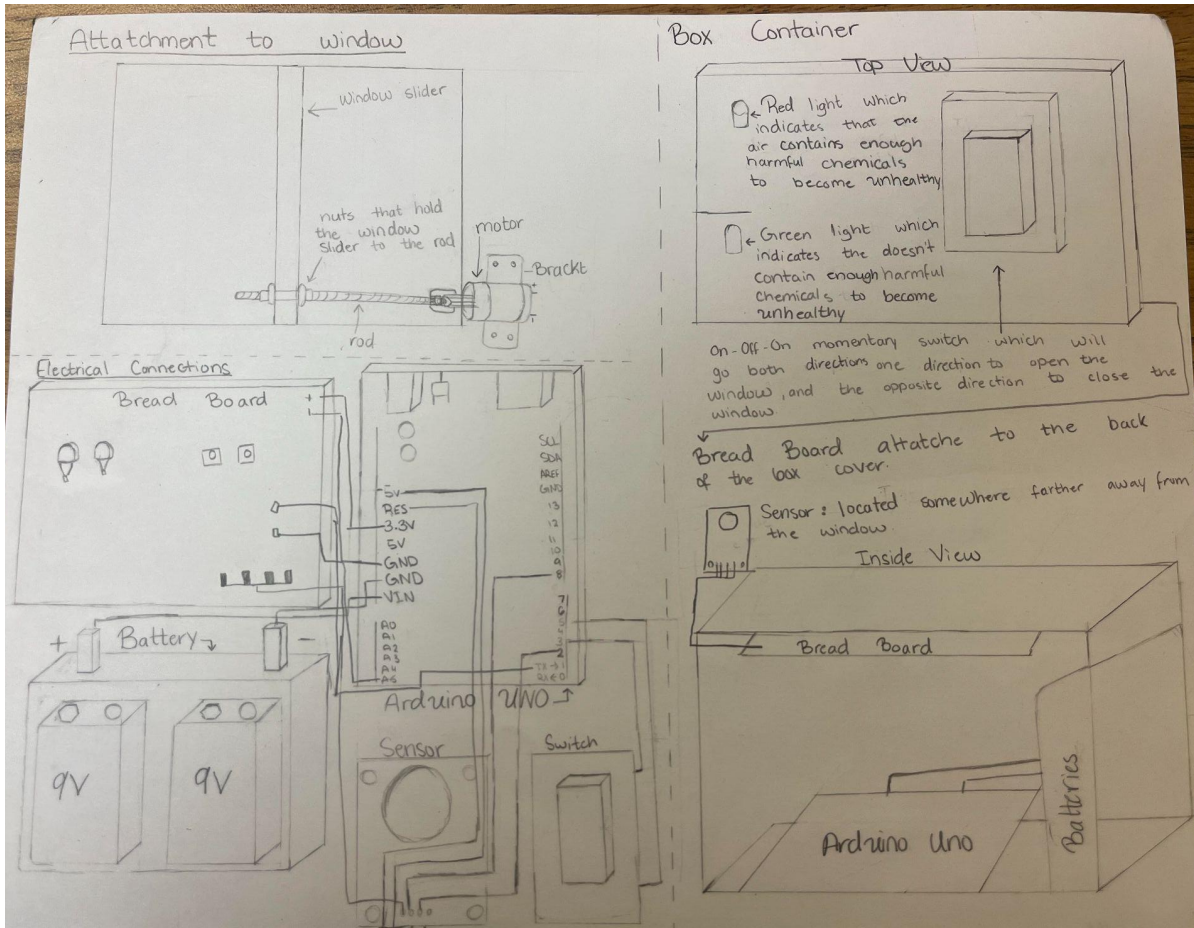 Attatchment to window
window slider
nuts that hold
the window
slider to the rod
motor
Brackt
rod
+
-
Electrical Connections
Bread Board
+
-
5V
RES
3.3V
5V
GND
GND
VIN
A0
A1
A2
A3
A4
A5
SCL
SDA
AREF
GND
13
12
11
10
9
8
7
6
5
3
2
TX→1
RX←0
Arduino UNO
+
Battery
-
9V
9V
Sensor
Switch
Box Container
Top View
Red light which
indicates that the
air contains enough
harmful chemicals
to become unhealthy
Green light which
indicates the doesn't
contain enough harmful
chemicals to become
unhealthy
On-Off-On momentary switch which will
go both directions one direction to open the
window, and the opposite direction to close the
window
Bread Board attatche to the back
of the box cover.
Sensor: located somewhere farther away from
the window
Inside View
Bread Board
Arduino Uno
Batteries